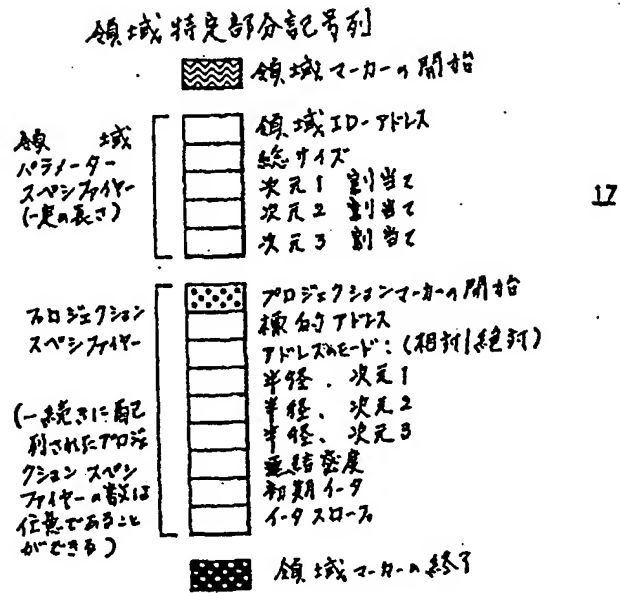 領域特定部分記号列
領域マーカーの開始
領域
パラメーター
スペシファイヤー
(一定の長さ)
領域ID-アドレス
総サイズ
次元1 割当て
次元2 割当て
次元3 割当て
17
プロジェクション
スペシファイヤー
(一続きに配
列されたプロジェ
クションスペシ
ファイヤーの数は
任意であること
ができる)
プロジェクションマーカーの開始
標的アドレス
アドレスのモード:(相対|絶対)
半径、次元1
半径、次元2
半径、次元3
連結密度
初期イータ
イータスロープ
領域マーカーの終了